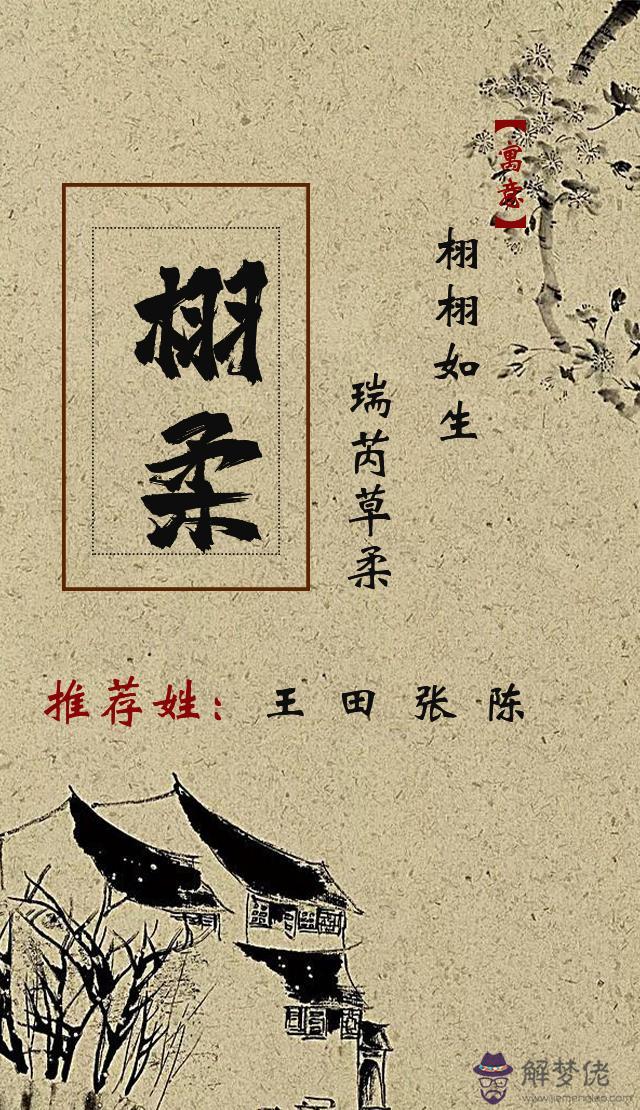 栩柔
【寓意】
栩栩如生
瑞芮草柔
推荐姓：王 田 张 陈
解梦佬
www.jiemenglao.com